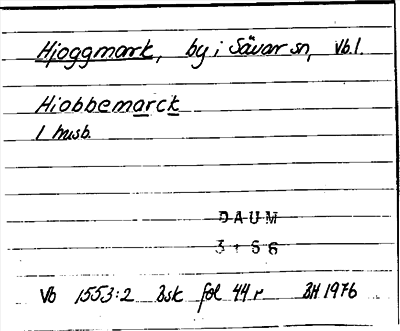 Hjoggmark, by i Sävar sn, Vb.l.
Hiobbemarck
1 husb.
DAUM
3456
Vb 1553:2 Bsk fol 44 r BH 1976